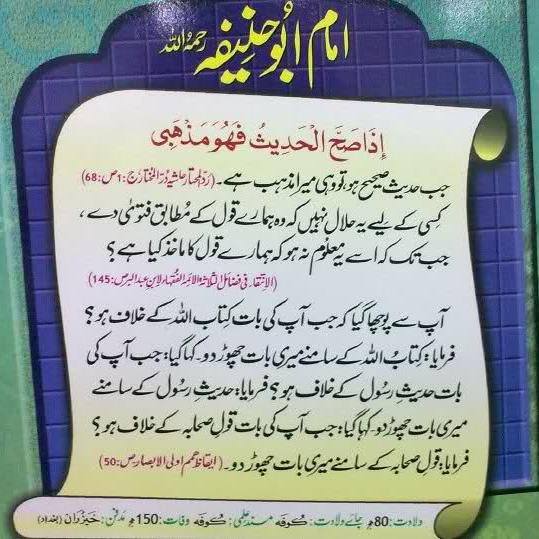 امام ابو حنیفہ رحمہ اللہ
إِذَا صَحَّ الْحَدِيثُ فَهُوَ مَذْهَبِي
جب حدیث صحیح ہو، تو وہی میرا مذہب ہے۔ (ردّ المحتار حاشیہ دُرّ المختار ج:1 ص:68)
کسی کے لیے یہ حلال نہیں کہ وہ ہمارے قول کے مُطابق فتوٰی دے،
جب تک کہ اسے یہ معلُوم نہ ہو کہ ہمارے قول کا ماخذ کیا ہے؟
(الانتقاء فی فضائل الثلاثۃ الائمۃ الفُقہاء لابن عبدالبر ص:145)
آپ سے پوچھا گیا کہ جب آپ کی بات کِتابُ اللہ کے خلاف ہو؟
فرمایا: کِتابُ اللہ کے سامنے میری بات چھوڑ دو۔ کہا گیا: جب آپ کی
بات حدیثِ رسول کے خلاف ہو؟ فرمایا: حدیثِ رسول کے سامنے
میری بات چھوڑ دو۔ کہا گیا: جب آپ کی بات قولِ صحابہ کے خلاف ہو؟
فرمایا: قولِ صحابہ کے سامنے میری بات چھوڑ دو۔ (ایقاظ ھمم اولی الابصار ص:50)
ولادت: 80ھ جائے ولادت: کُوفہ مسند علمی: کُوفہ وفات: 150ھ مدفن: خیزُران (بغداد)